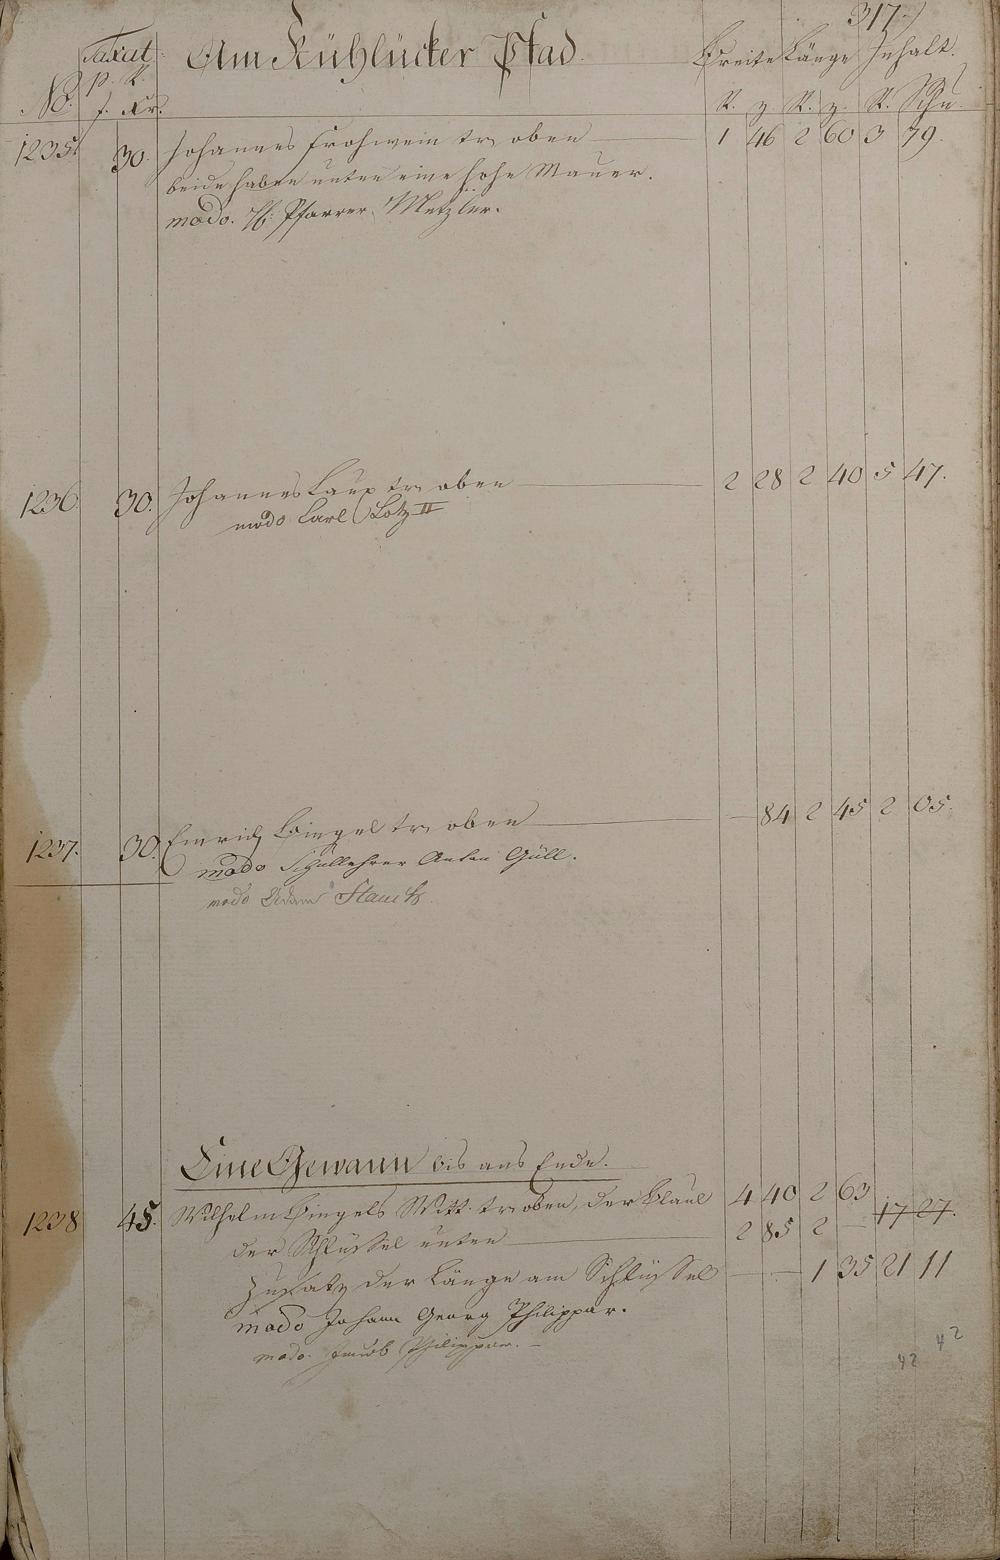 317.
Taxat. Am Kühlücker Pfad Breite Länge Inhalt.
p. R.
No. f. Xr. R. z. R. z. R. Schu
1235. 30. Johannes Frohwein tr. oben 1 46 2 60 3 79.
beide haben unten eine hohe Mauer.
modo. Pfarrer Metzler.
1236. 30. Johannes Laux tr. oben 2 28 2 40 5 47.
modo Carl Lotz II
1237. 30. Emrich Bingel tr. oben — 84 2 45 2 05.
modo Schullehrer Anton Güll.
modo Adam
Eine Gewann bis ans Ende.
1238 45. Wilhelm Bingels Witt. tr. oben, der 4 40 2 63 17 27.
der Schlüssel unten 2 85 2 —
Zusatz der Länge am Schlüssel — — 1 35 21 11
modo Johann Georg Philippar.
modo. Jacob Philippar. —
42 42